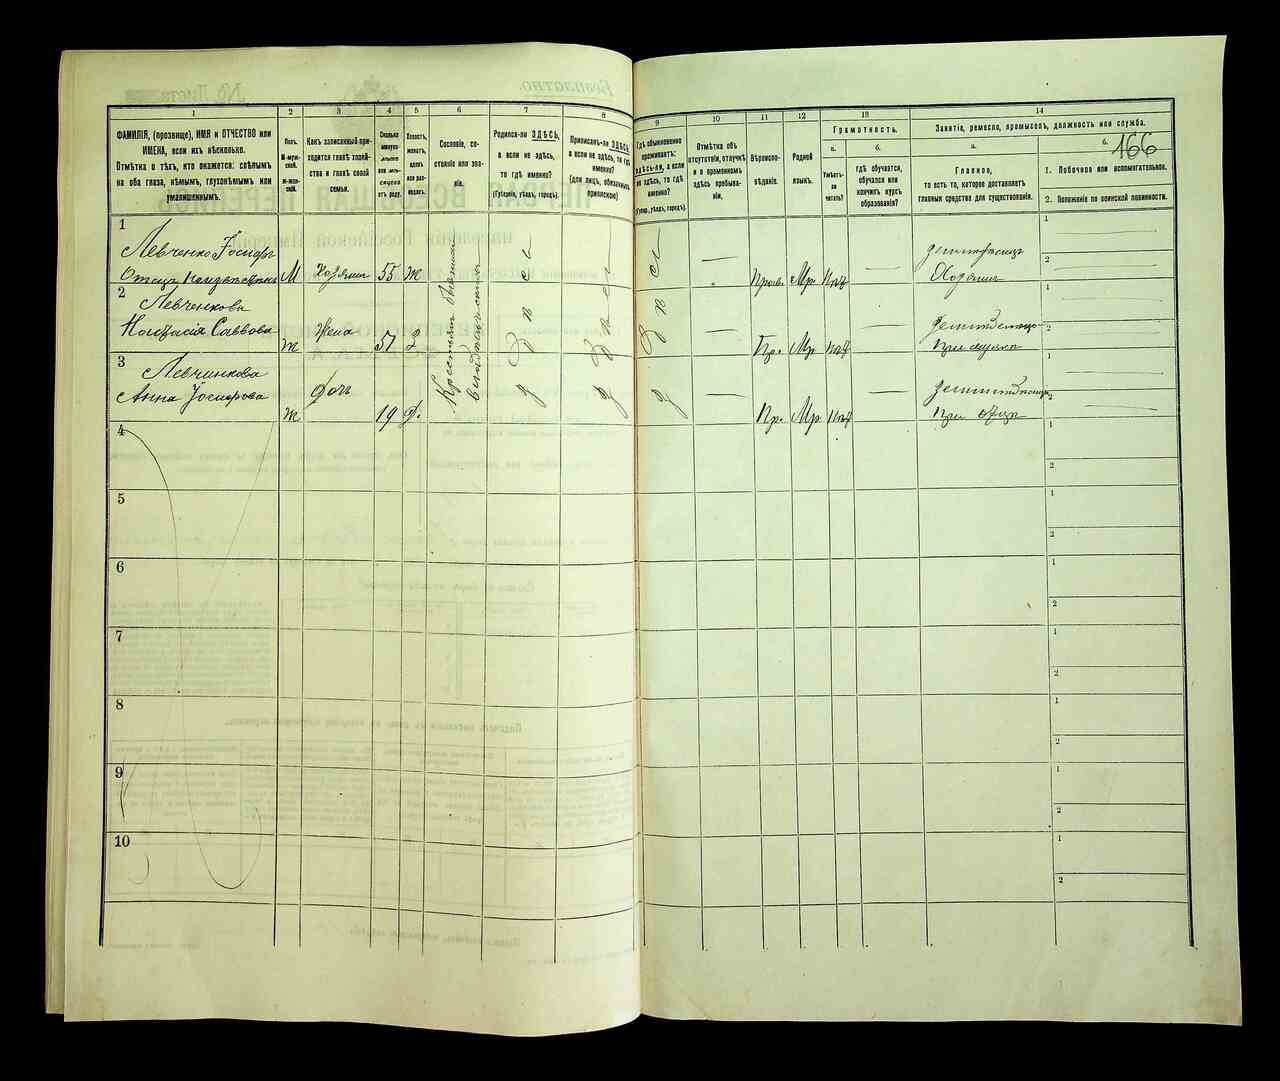 1
ФАМИЛІЯ, (прозвище), ИМЯ и ОТЧЕСТВО или
ИМЕНА, если ихъ нѣсколько.
Отмѣтка о тѣхъ, кто окажется: слѣпымъ
на оба глаза, нѣмымъ, глухонѣмымъ или
умалишеннымъ.
2
Полъ.
М-муж-
ской.
Ж-жен-
скій.
3
Какъ записанный при-
ходится главѣ хозяй-
ства и главѣ своей
семьи.
4
Сколько
минуло
лѣтъ
или мѣ-
сяцевъ
отъ роду.
5
Холостъ,
женатъ,
вдовъ
или раз-
веденъ.
6
Сословіе, со-
стояніе или зва-
ніе.
7
Родился-ли ЗДѢСЬ,
а если не здѣсь,
то гдѣ именно?
(Губернія, уѣздъ, городъ).
8
Приписанъ-ли ЗДѢСЬ,
а если не здѣсь, то гдѣ
именно?
(для лицъ, обязанныхъ
припискою)
9
Гдѣ обыкновенно
проживаетъ:
здѣсь-ли, а если
не здѣсь, то гдѣ
именно?
(Губер., уѣздъ, городъ).
10
Отмѣтка объ
отсутствіи, отлучкѣ
и о временномъ
здѣсь пребыва-
ніи.
11
Вѣроиспо-
вѣданіе.
12
Родной
языкъ.
13
Грамотность.
а.
Умѣетъ-
ли
читать?
б.
гдѣ обучается,
обучался или
кончилъ курсъ
образованія?
14
Занятіе, ремесло, промыселъ, должность или служба.
а.
Главное,
то есть то, которое доставляетъ
главныя средства для существованія.
б.
166
1. Побочное или вспомогательное.
2. Положеніе по воинской повинности.
1
Левченко Іосифъ
М Хозяинъ 55 Ж
Здѣсь
Здѣсь
Здѣсь
Правс. Мр. Нѣт
Хозяинъ
1
2
2
Левченкова
Настасія Саввова
Ж Жена 51 З
Пр. Мр. нѣт
При мужѣ
1
2
3
Левченкова
Анна Іосифова
Ж дочь 19 Д.
Пр. Мр. нѣт
При отцѣ
1
2
4
1
2
5
1
2
6
1
2
7
1
2
8
1
2
9
1
2
10
1
2